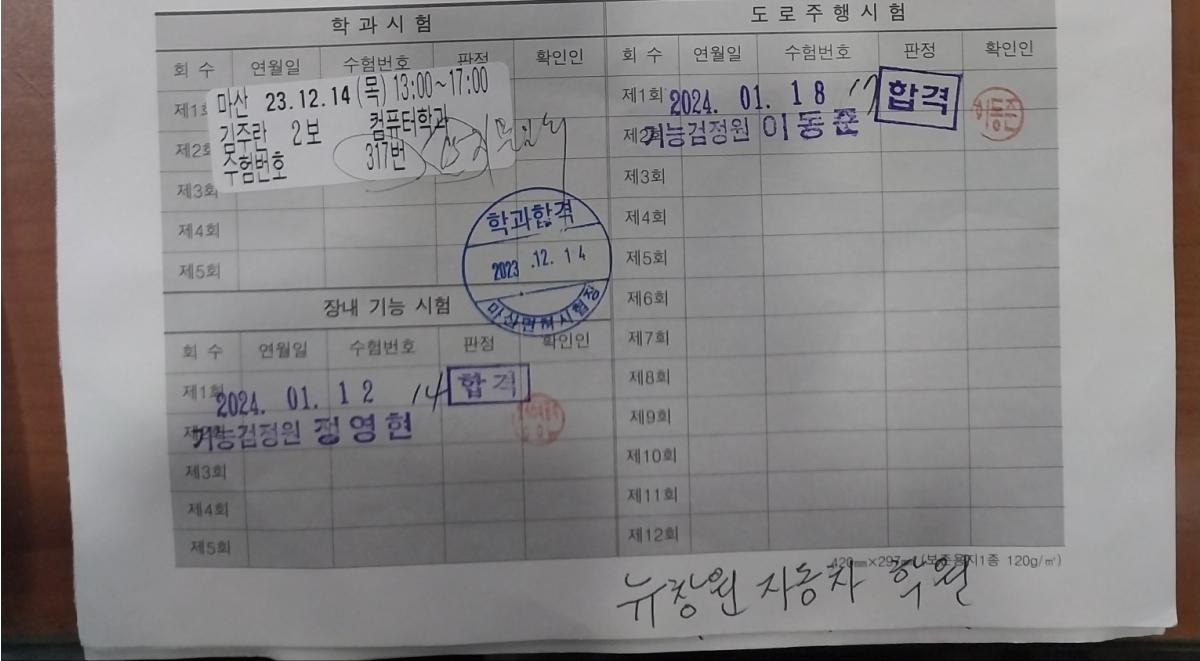 학과시험
회 수 연월일 수험번호 판정 확인인
마산 23.12.14(목) 13:00~17:00
김주란 2보 컴퓨터학과
수험번호 317번
제1회
제2회
제3회
제4회
제5회
학과합격
2023.12.14
마산면허시험장
장내 기능 시험
회 수 연월일 수험번호 판정 확인인
제1회 2024. 01. 12 14 합격
기능검정원 정영현
제3회
제4회
제5회
도로주행시험
회 수 연월일 수험번호 판정 확인인
제1회 2024. 01. 18 17 합격
제2회 기능검정원 이동준
이동준
제3회
제4회
제5회
제6회
제7회
제8회
제9회
제10회
제11회
제12회
420㎜×297㎜(보존용지1종 120g/㎡)
뉴창원 자동차 학원